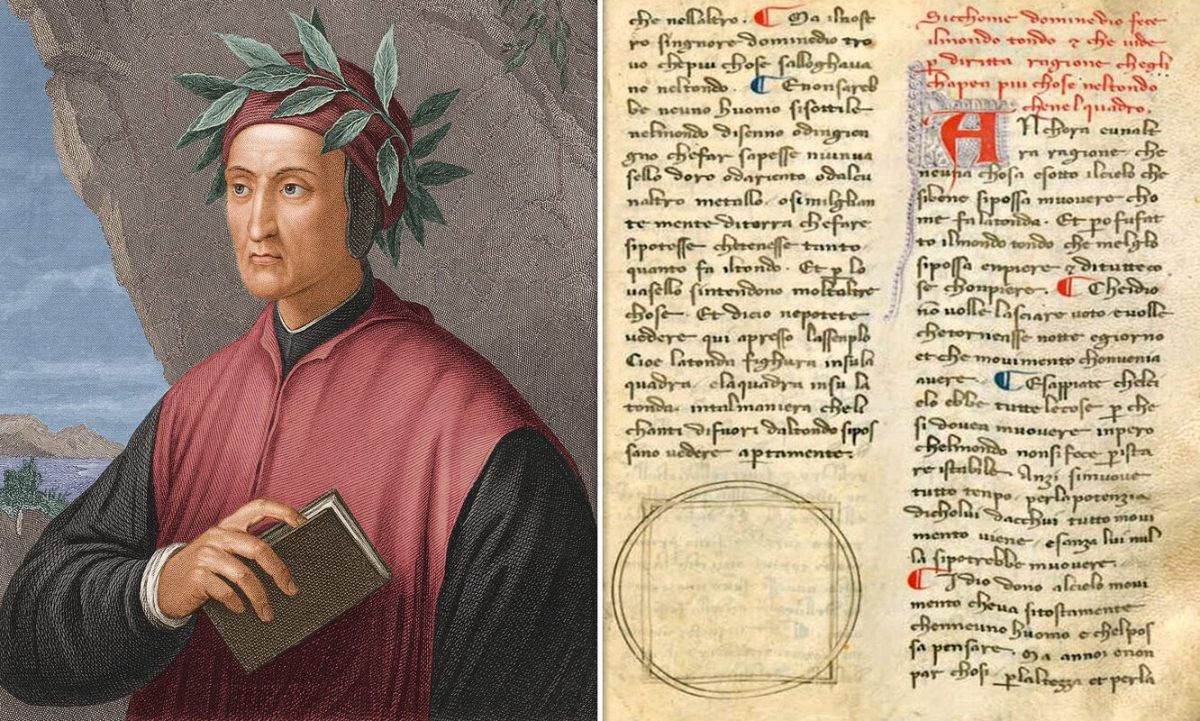 che nellaltro. Ma ilnost
ro singnore domined io tro
vo chepiu chose salloghava
no neltondo. Enonsareb
be neuno huomo sisottile
nelmondo disenno odingien
gno chefar sapesse niunva
sello doro odariento odalcu
naltro metallo. osimilglian
te mente diterra chefare
sipotesse chetenesse tanto
quanto fa iltondo. Et p lo
vasello sintendono moltaltre
chose. Et dicio nepotete
vedere qui apresso lassenplo
Cioe latonda fighura insula
quadra. elaquadra insu la
tonda. intalmaniera cheli
chanti difuori daltondo sipos
sano vedere aptamente.
Sicchome dominedio fece
ilmondo tondo & che vide
p diritta ragione chegli
chapea piu chose neltondo
chenelquadro.
Anchora eunalt
ra ragione che
neuna chosa esotto ilcielo che
sibene sipossa muovere cho
me fa latonda. Et po fufat
to ilmondo tondo che melglo
sipossa enpiere & ditutteco
se chonpiere. Cheidio
nō volle lasciare voto evolle
chetornesse notte egiorno
et che movimento chonvenia
avere. Esappiate chelci
elo ebbe tutte lecose p che
si dovea muovere inpero
chelmondo nonsifece p ista
re istabile. Anzi simuove
tutto tenpo. perlapotenzia
dicholui dacchui tutto movi
mento viene. esanza lui nul
la sipotrebbe muovere.
Idio dono alcielo movi
mento cheva sitostamente
chenneuno huomo e chelpos
sa pensare. Ma annoi enon
par chosi. plaltezza et perla